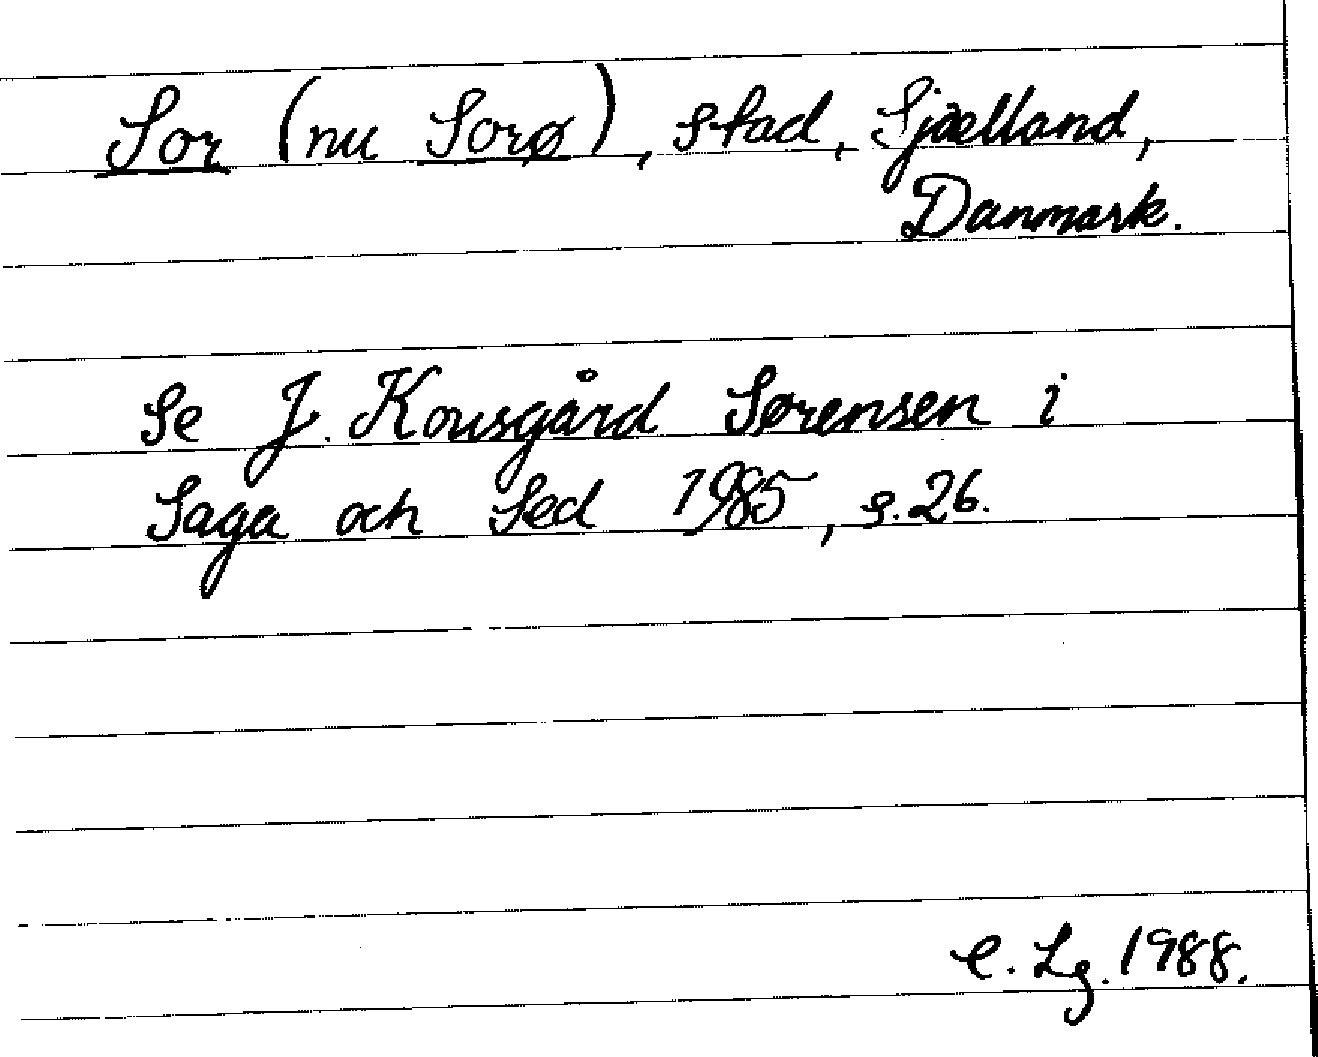 Sor (nu Sorø), stad, Sjælland,
Danmark.
Se J. Kousgård Sørensen i
Saga och Sed 1985, s. 26.
C. Lg. 1988.